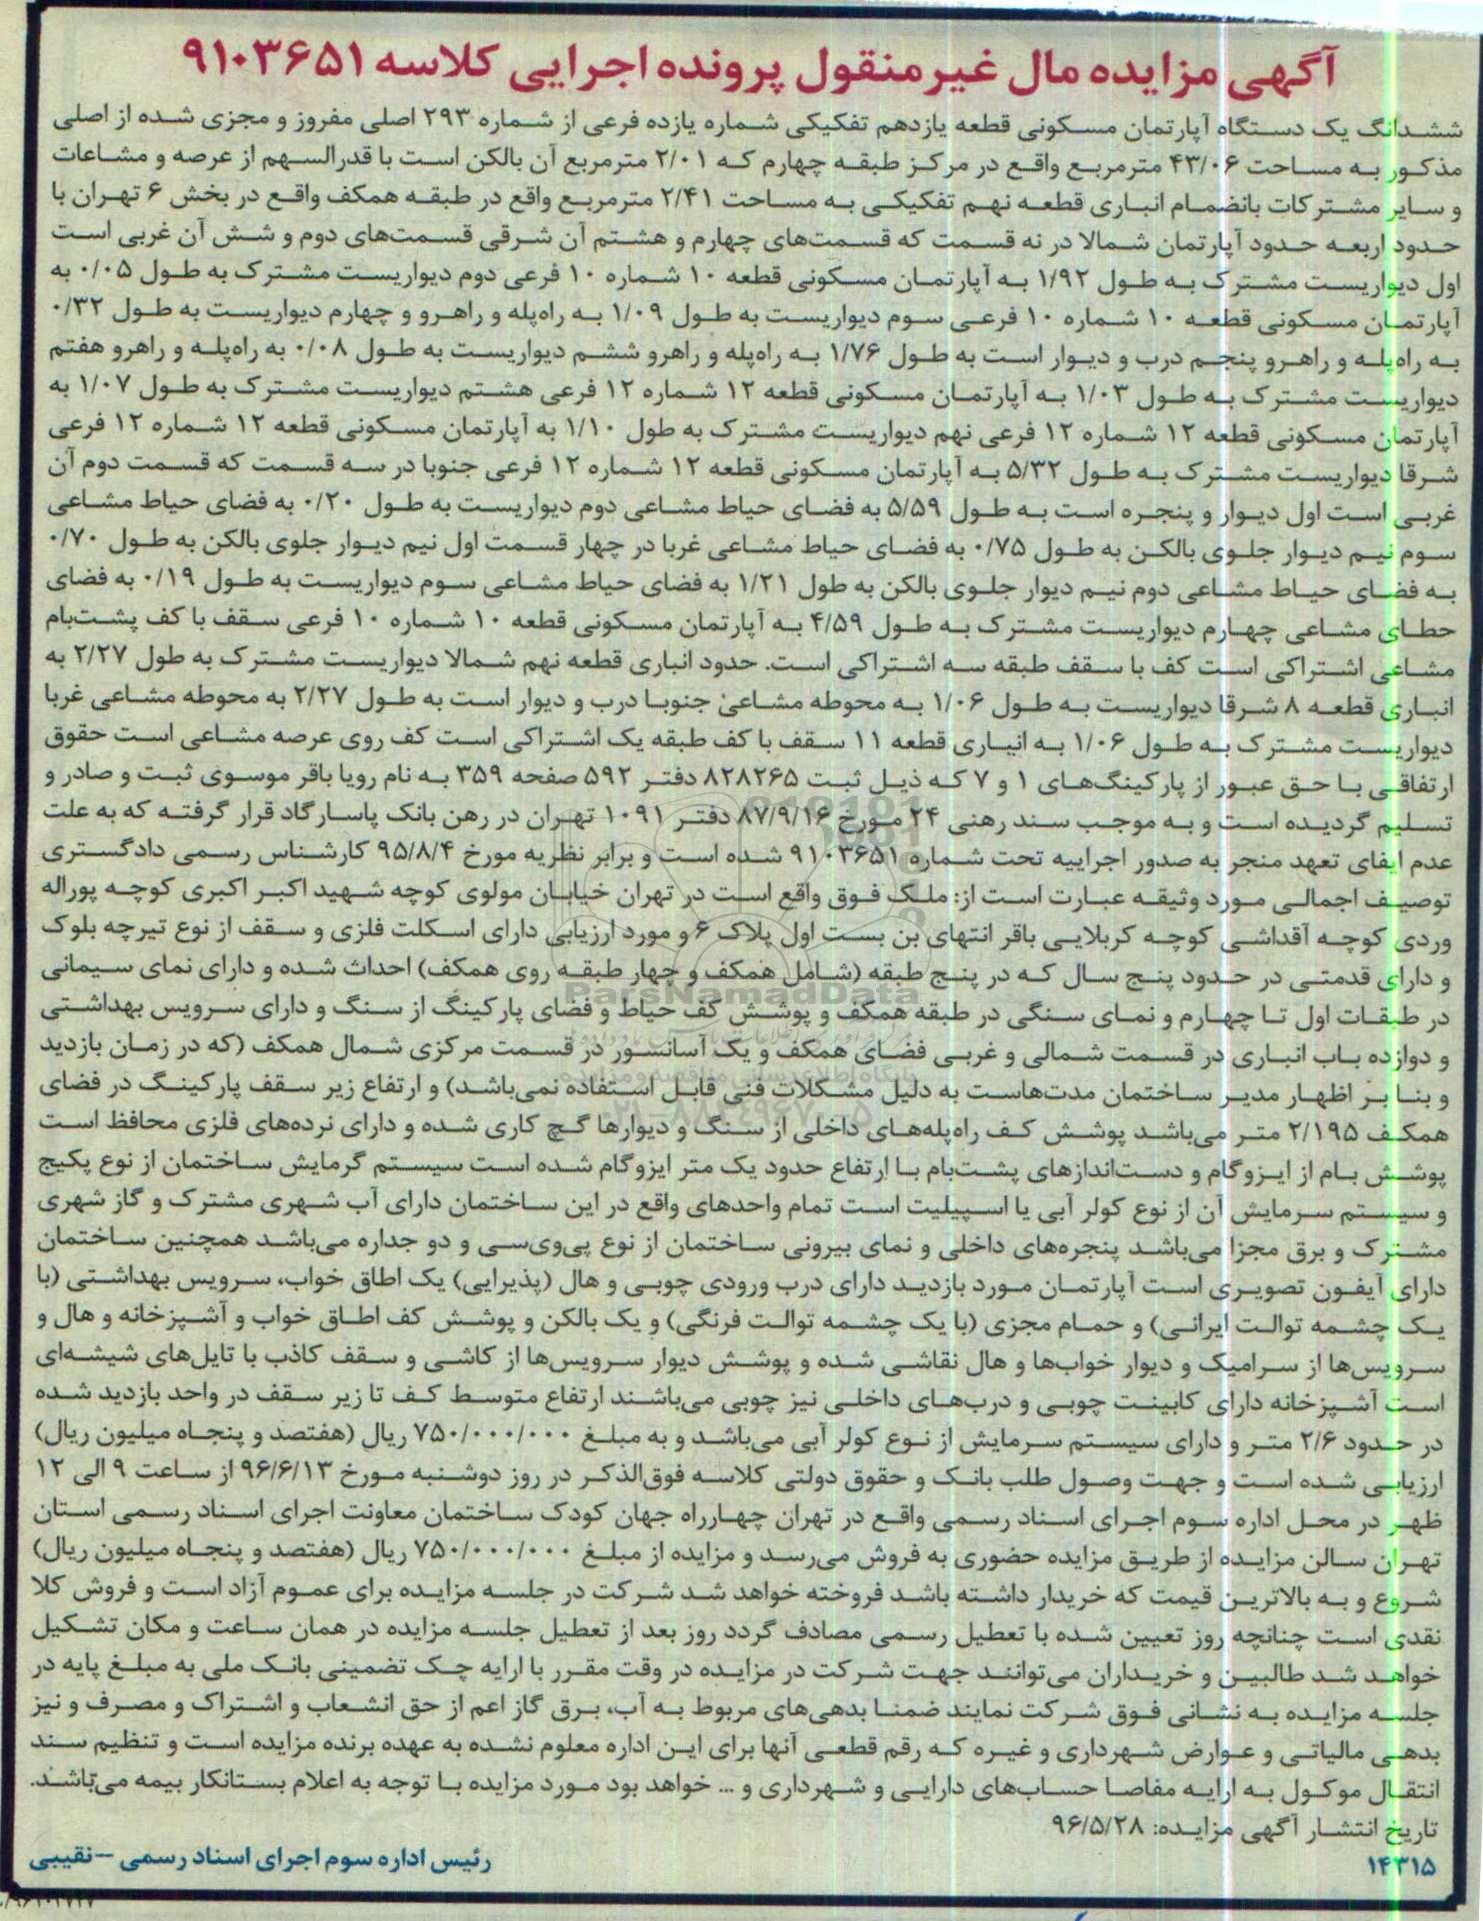 آگهی مزایده مال غیرمنقول پرونده اجرایی کلاسه ۹۱۰۳۶۵۱
ششدانگ یک دستگاه آپارتمان مسکونی قطعه یازدهم تفکیکی شماره یازده فرعی از شماره ۲۹۳ اصلی مفروز و مجزی شده از اصلی
مذکور به مساحت ۴۳/۰۶ مترمربع واقع در مرکز طبقه چهارم که ۲/۰۱ مترمربع آن بالکن است با قدرالسهم از عرصه و مشاعات
و سایر مشترکات بانضمام انباری قطعه نهم تفکیکی به مساحت ۲/۴۱ مترمربع واقع در طبقه همکف واقع در بخش ۶ تهران با
حدود اربعه حدود آپارتمان شمالا در نه قسمت که قسمت‌های چهارم و هشتم آن شرقی قسمت‌های دوم و شش آن غربی است
اول دیواریست مشترک به طول ۱/۹۲ به آپارتمان مسکونی قطعه ۱۰ شماره ۱۰ فرعی دوم دیواریست مشترک به طول ۰/۰۵ به
آپارتمان مسکونی قطعه ۱۰ شماره ۱۰ فرعی سوم دیواریست به طول ۱/۰۹ به راه‌پله و راهرو و چهارم دیواریست به طول ۰/۳۲
به راه‌پله و راهرو پنجم درب و دیوار است به طول ۱/۷۶ به راه‌پله و راهرو ششم دیواریست به طول ۰/۰۸ به راه‌پله و راهرو هفتم
دیواریست مشترک به طول ۱/۰۳ به آپارتمان مسکونی قطعه ۱۲ شماره ۱۲ فرعی هشتم دیواریست مشترک به طول ۱/۰۷ به
آپارتمان مسکونی قطعه ۱۲ شماره ۱۲ فرعی نهم دیواریست مشترک به طول ۱/۱۰ به آپارتمان مسکونی قطعه ۱۲ شماره ۱۲ فرعی
شرقا دیواریست مشترک به طول ۵/۳۲ به آپارتمان مسکونی قطعه ۱۲ شماره ۱۲ فرعی جنوبا در سه قسمت که قسمت دوم آن
غربی است اول دیوار و پنجره است به طول ۵/۵۹ به فضای حیاط مشاعی دوم دیواریست به طول ۰/۲۰ به فضای حیاط مشاعی
سوم نیم دیوار جلوی بالکن به طول ۰/۷۵ به فضای حیاط مشاعی غربا در چهار قسمت اول نیم دیوار جلوی بالکن به طول ۰/۷۰
به فضای حیاط مشاعی دوم نیم دیوار جلوی بالکن به طول ۱/۲۱ به فضای حیاط مشاعی سوم دیواریست به طول ۰/۱۹ به فضای
حطای مشاعی چهارم دیواریست مشترک به طول ۴/۵۹ به آپارتمان مسکونی قطعه ۱۰ شماره ۱۰ فرعی سقف با کف پشت‌بام
مشاعی اشتراکی است کف با سقف طبقه سه اشتراکی است. حدود انباری قطعه نهم شمالا دیواریست مشترک به طول ۲/۲۷ به
انباری قطعه ۸ شرقا دیواریست به طول ۱/۰۶ به محوطه مشاعی جنوبا درب و دیوار است به طول ۲/۲۷ به محوطه مشاعی غربا
دیواریست مشترک به طول ۱/۰۶ به انباری قطعه ۱۱ سقف با کف طبقه یک اشتراکی است کف روی عرصه مشاعی است حقوق
ارتفاقی با حق عبور از پارکینگ‌های ۱ و ۷ که ذیل ثبت ۸۲۸۲۶۵ دفتر ۵۹۲ صفحه ۳۵۹ به نام رویا باقر موسوی ثبت و صادر و
تسلیم گردیده است و به موجب سند رهنی ۲۴ مورخ ۸۷/۹/۱۶ دفتر ۱۰۹۱ تهران در رهن بانک پاسارگاد قرار گرفته که به علت
عدم ایفای تعهد منجر به صدور اجراییه تحت شماره ۹۱۰۳۶۵۱ شده است و برابر نظریه مورخ ۹۵/۸/۴ کارشناس رسمی دادگستری
توصیف اجمالی مورد وثیقه عبارت است از: ملک فوق واقع است در تهران خیابان مولوی کوچه شهید اکبر اکبری کوچه پوراله
وردی کوچه آقداشی کوچه کربلایی باقر انتهای بن بست اول پلاک ۶ و مورد ارزیابی دارای اسکلت فلزی و سقف از نوع تیرچه بلوک
و دارای قدمتی در حدود پنج سال که در پنج طبقه (شامل همکف و چهار طبقه روی همکف) احداث شده و دارای نمای سیمانی
در طبقات اول تا چهارم و نمای سنگی در طبقه همکف و پوشش کف حیاط و فضای پارکینگ از سنگ و دارای سرویس بهداشتی
و دوازده باب انباری در قسمت شمالی و غربی فضای همکف و یک آسانسور در قسمت مرکزی شمال همکف (که در زمان بازدید
و بنا بر اظهار مدیر ساختمان مدت‌هاست به دلیل مشکلات فنی قابل استفاده نمی‌باشد) و ارتفاع زیر سقف پارکینگ در فضای
همکف ۲/۱۹۵ متر می‌باشد پوشش کف راه‌پله‌های داخلی از سنگ و دیوارها گچ کاری شده و دارای نرده‌های فلزی محافظ است
پوشش بام از ایزوگام و دست‌اندازهای پشت‌بام با ارتفاع حدود یک متر ایزوگام شده است سیستم گرمایش ساختمان از نوع پکیج
و سیستم سرمایش آن از نوع کولر آبی یا اسپیلیت است تمام واحدهای واقع در این ساختمان دارای آب شهری مشترک و گاز شهری
مشترک و برق مجزا می‌باشد پنجره‌های داخلی و نمای بیرونی ساختمان از نوع پی‌وی‌سی و دو جداره می‌باشد همچنین ساختمان
دارای آیفون تصویری است آپارتمان مورد بازدید دارای درب ورودی چوبی و هال (پذیرایی) یک اطاق خواب، سرویس بهداشتی (با
یک چشمه توالت ایرانی) و حمام مجزی (با یک چشمه توالت فرنگی) و یک بالکن و پوشش کف اطاق خواب و آشپزخانه و هال و
سرویس‌ها از سرامیک و دیوار خواب‌ها و هال نقاشی شده و پوشش دیوار سرویس‌ها از کاشی و سقف کاذب با تایل‌های شیشه‌ای
است آشپزخانه دارای کابینت چوبی و درب‌های داخلی نیز چوبی می‌باشند ارتفاع متوسط کف تا زیر سقف در واحد بازدید شده
در حدود ۲/۶ متر و دارای سیستم سرمایش از نوع کولر آبی می‌باشد و به مبلغ ۷۵۰/۰۰۰/۰۰۰ ریال (هفتصد و پنجاه میلیون ریال)
ارزیابی شده است و جهت وصول طلب بانک و حقوق دولتی کلاسه فوق‌الذکر در روز دوشنبه مورخ ۹۶/۶/۱۳ از ساعت ۹ الی ۱۲
ظهر در محل اداره سوم اجرای اسناد رسمی واقع در تهران چهارراه جهان کودک ساختمان معاونت اجرای اسناد رسمی استان
تهران سالن مزایده از طریق مزایده حضوری به فروش می‌رسد و مزایده از مبلغ ۷۵۰/۰۰۰/۰۰۰ ریال (هفتصد و پنجاه میلیون ریال)
شروع و به بالاترین قیمت که خریدار داشته باشد فروخته خواهد شد شرکت در جلسه مزایده برای عموم آزاد است و فروش کلا
نقدی است چنانچه روز تعیین شده با تعطیل رسمی مصادف گردد روز بعد از تعطیل جلسه مزایده در همان ساعت و مکان تشکیل
خواهد شد طالبین و خریداران می‌توانند جهت شرکت در مزایده در وقت مقرر با ارایه چک تضمینی بانک ملی به مبلغ پایه در
جلسه مزایده به نشانی فوق شرکت نمایند ضمنا بدهی‌های مربوط به آب، برق گاز اعم از حق انشعاب و اشتراک و مصرف و نیز
بدهی مالیاتی و عوارض شهرداری و غیره که رقم قطعی آنها برای این اداره معلوم نشده به عهده برنده مزایده است و تنظیم سند
انتقال موکول به ارایه مفاصا حساب‌های دارایی و شهرداری و ... خواهد بود مورد مزایده با توجه به اعلام بستانکار بیمه می‌باشد.
تاریخ انتشار آگهی مزایده: ۹۶/۵/۲۸
۱۴۳۱۵ رئیس اداره سوم اجرای اسناد رسمی –نقیبی
ParsNamadData